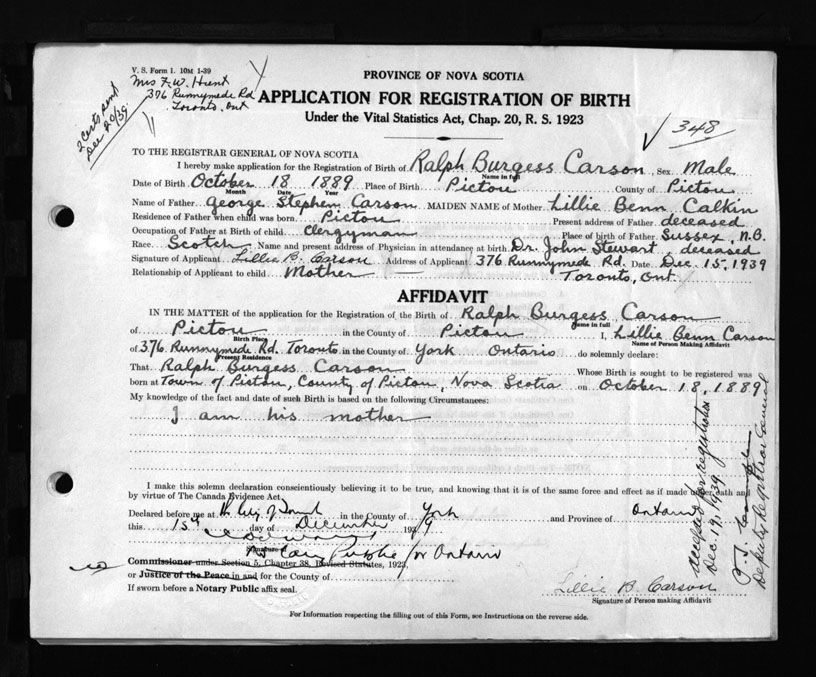 V. S. Form 1. 10M 1-39
Mrs F. W. Hunt
376 Runnymede Rd
Toronto, Ont
2 certs sent
Dec 20/39.
PROVINCE OF NOVA SCOTIA
APPLICATION FOR REGISTRATION OF BIRTH
Under the Vital Statistics Act, Chap. 20, R. S. 1923
348
TO THE REGISTRAR GENERAL OF NOVA SCOTIA
I hereby make application for the Registration of Birth of Ralph Burgess Carson, Sex Male
Name in full
Date of Birth October 18 1889 Place of Birth Pictou County of Pictou
Month Date Year
Name of Father George Stephen Carson MAIDEN NAME of Mother Lillie Benn Calkin
Residence of Father when child was born Pictou Present address of Father deceased
Occupation of Father at Birth of child Clergyman Place of birth of Father Sussex, N.B.
Race Scotch Name and present address of Physician in attendance at birth Dr. John Stewart, deceased
Signature of Applicant Lillie B. Carson Address of Applicant 376 Runnymede Rd. Date Dec 15, 1939
Relationship of Applicant to child Mother Toronto, Ont.
AFFIDAVIT
IN THE MATTER of the application for the Registration, of the Birth of Ralph Burgess Carson
Name in full
of Pictou in the County of Pictou I, Lillie Benn Carson
Birth Place Name of Person Making Affidavit
of 376 Runnymede Rd. Toronto in the County of York Ontario do solemnly declare:
Present Residence
That Ralph Burgess Carson Whose Birth is sought to be registered was
born at Town of Pictou, County of Pictou, Nova Scotia on October 18, 1889
My knowledge of the fact and date of such Birth is based on the following Circumstances:
I am his mother
I make this solemn declaration conscientiously believing it to be true, and knowing that it is of the same force and effect as if made under oath and
by virtue of The Canada Evidence Act.
Declared before me at in the County of York and Province of Ontario
this 15th day of December 1939
Signature of
Notary Public for Ontario
Commissioner under Section 5, Chapter 38, Revised Statutes, 1923,
or Justice of the Peace in and for the County of
If sworn before a Notary Public affix seal.
Lillie B. Carson
Signature of Person making Affidavit
accepted for registration
Dec. 19, 1939
Deputy Registrar General
For Information respecting the filling out of this Form, see Instructions on the reverse side.